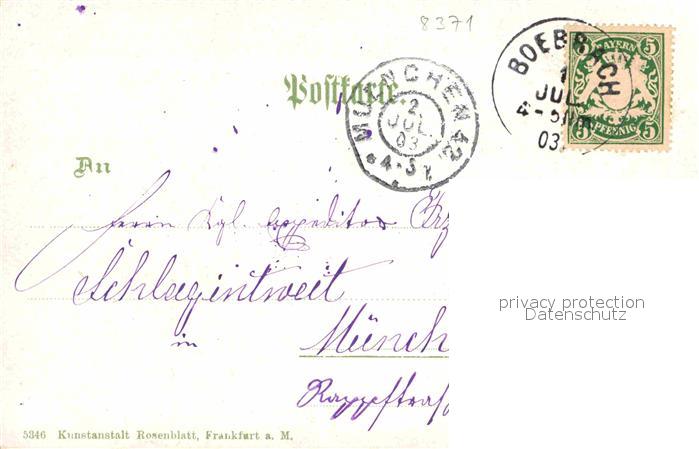 8371
BOEBRACH
1
JUL
4-5NM
03
BAYERN
5 5
5 5
PFENNIG
Postkarte.
MUENCHEN 42.
2
JUL.
03
4-5
An
Herrn Kgl. Expeditor
Schlagintweit
in Münch
privacy protection
Datenschutz
5346 Kunstanstalt Rosenblatt, Frankfurt a. M.